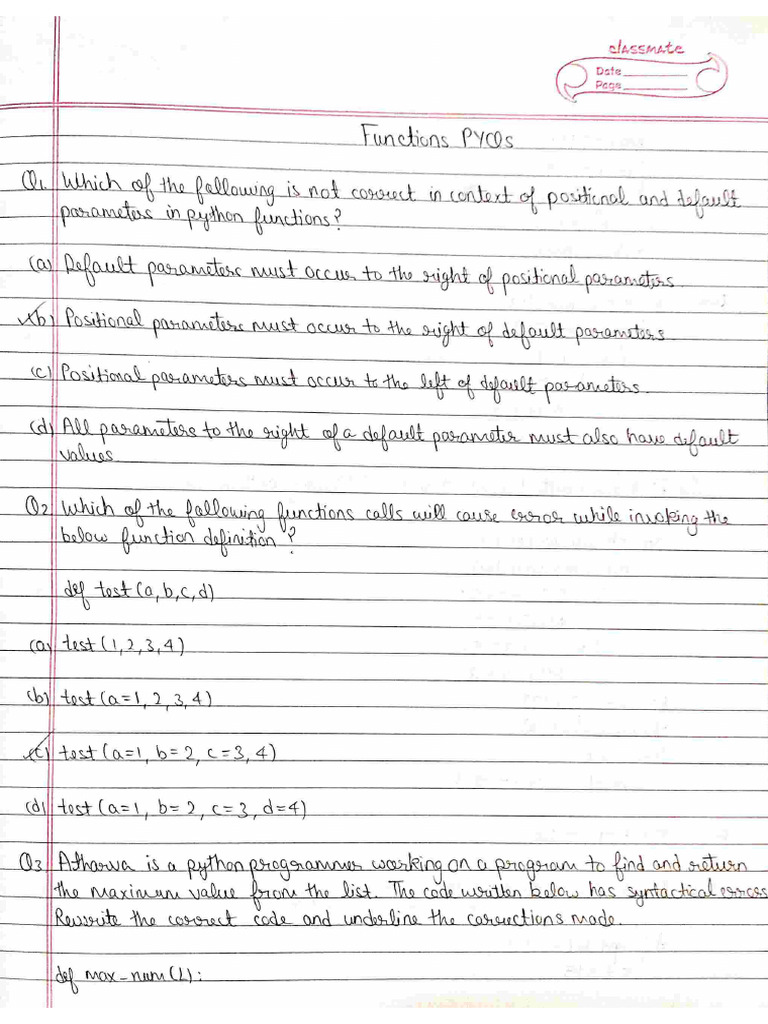 classmate
Date
Page
Functions PYQs
Q1 Which of the following is not correct in context of positional and default
parameters in python functions?
(a) Default parameters must occur to the right of positional parameters
(b) Positional parameters must occur to the right of default parameters.
(c) Positional parameters must occur to the left of default parameters.
(d) All parameters to the right of a default parameter must also have default
values.
Q2 Which of the following functions calls will cause error while invoking the
below function definition?
def test(a,b,c,d)
(a) test(1,2,3,4)
(b) test(a=1, 2, 3, 4)
(c) test(a=1, b=2, c=3, 4)
(d) test(a=1, b=2, c=3, d=4)
Q3 Atharva is a python programmer working on a program to find and return
the maximum value from the list. The code written below has syntactical errors
Rewrite the correct code and underline the corrections made.
def max-num(L):